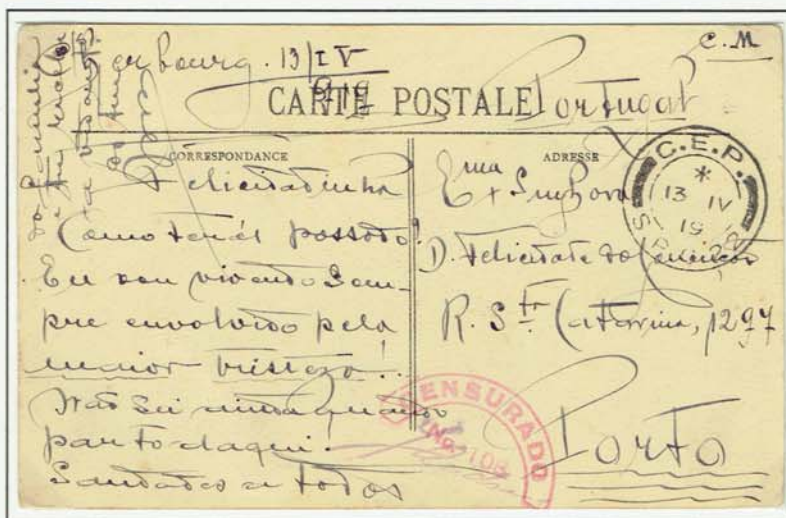 C. M
Cherbourg. 13/IV
919
CARTE POSTALE
Portugal
CORRESPONDANCE
Felicidadinha
Como tens passado?
Eu vou vivendo sem-
pre envolvido pela
maior tristeza!..
Não sei ainda quando
parto daqui!
Saudades a todos
ADRESSE
Exma Senhora
D. Felicidade
R. Sta Catarina, 1297
Porto
C.E.P.
*
13 IV
19
CENSURADO
No 106